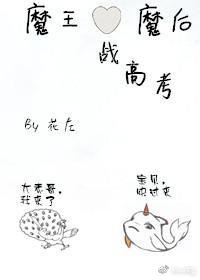 魔王 魔后
战
高
考
By 花左
大表哥,
我来了
宝贝,
快过来